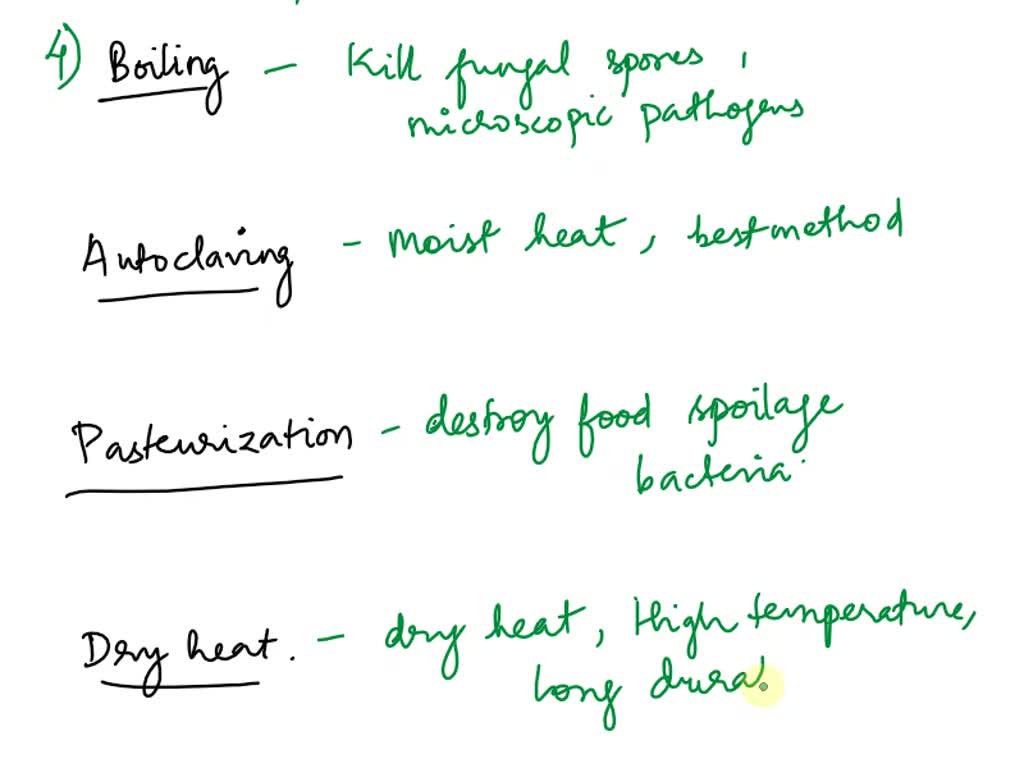 4) Boiling - Kill fungal spores,
microscopic pathogens
Autoclaving - Moist heat, best method
Pasteurization - destroy food spoilage
bacteria.
Dry heat. - dry heat, High temperature,
long dura